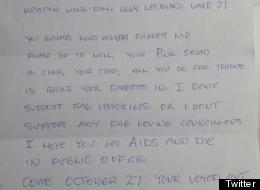 KRISTYN WONG-TAM - UGLY LESBIAN, WARD 27
YOU WOMAN FAGGOT
PLEASE GO TO HELL, YOUR PINK SQUAD
IS CRAP, YOUR CRAP, ALL YOU DO FOR TORONTO
IS BRING YOUR FAGGOTS IN. I DONT
SUPPORT FAG MARRIAGES. OR I DONT
SUPPORT ANY FAG LOVING COUNCILLORS
I HOPE YOU GET AIDS AND DIE
IN PUBLIC OFFICE,
COME OCTOBER 27. YOUR VOTED OUT
Twitter